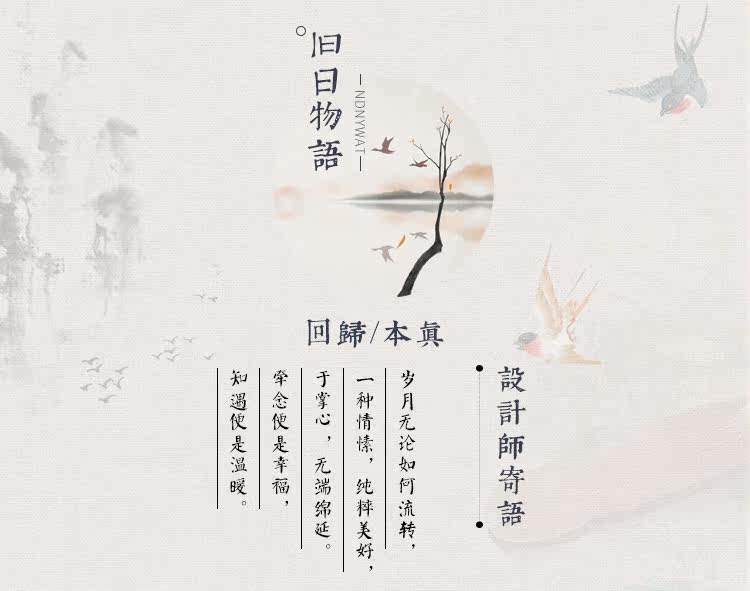 旧日物語
NDNYWAT
回歸/本真
設計師寄語
岁月无论如何流转，
一种情愫，纯粹美好，
于掌心，无端绵延。
牵念便是幸福，
知遇便是温暖。